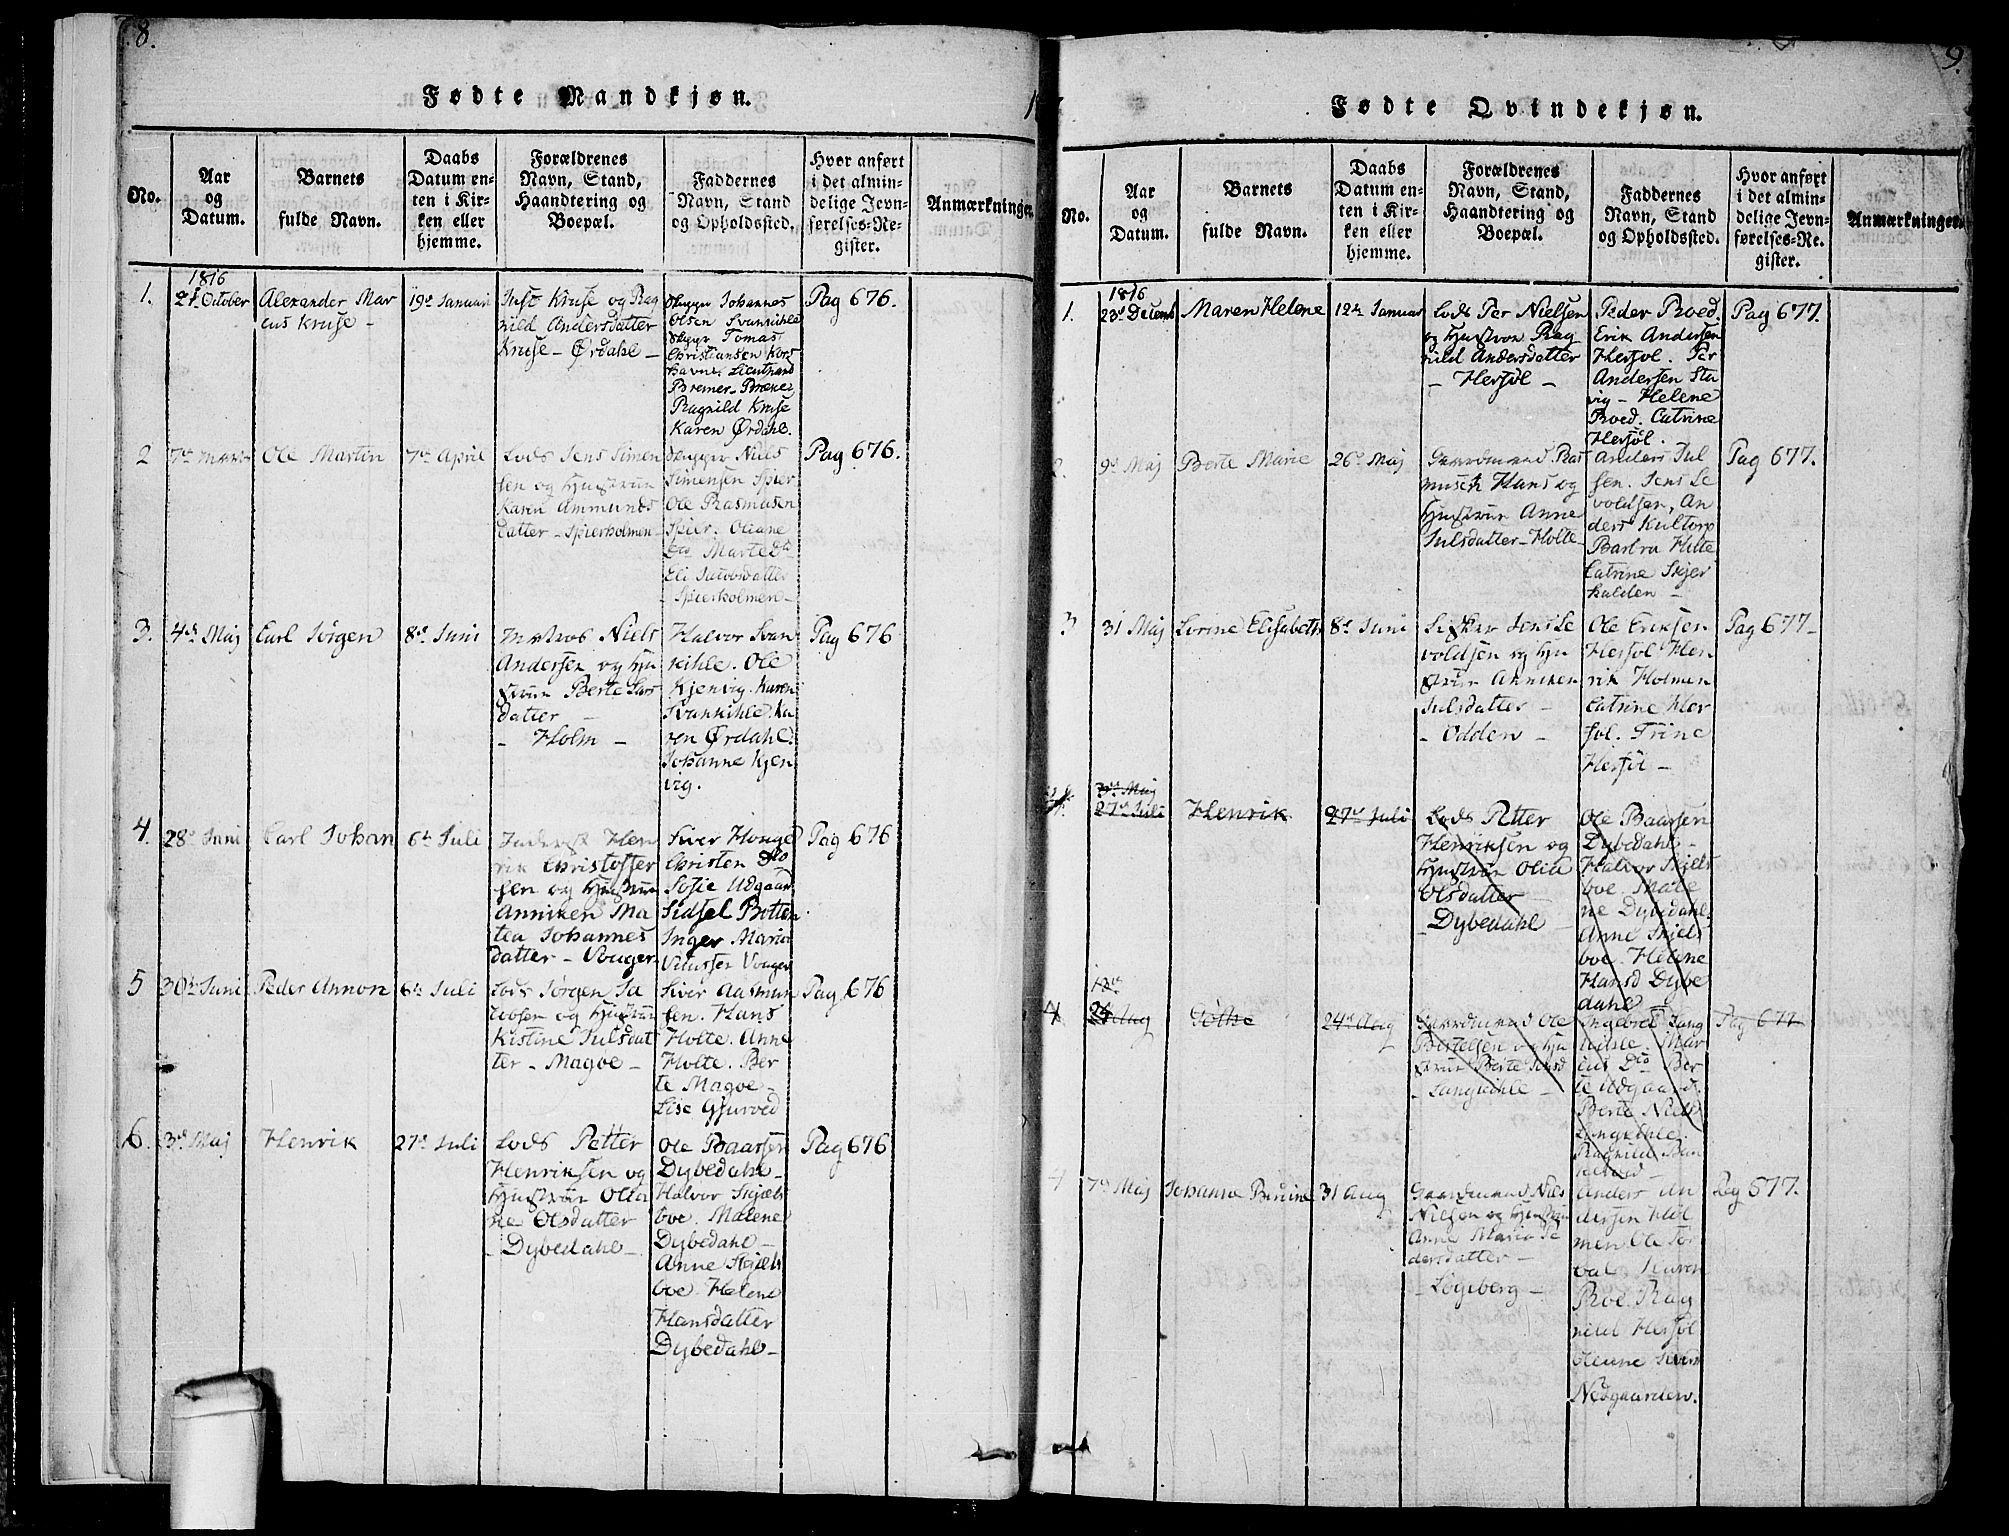 8.
Fødte Mandkjøn.
No.
Aar
og
Datum.
Barnets
fulde Navn.
Daabs
Datum en-
ten i Kir-
ken eller
hjemme.
Forældrenes
Navn, Stand,
Haandtering og
Boepæl.
Faddernes
Navn, Stand
og Opholdssted.
Hvor anført
i det almin-
delige Jevn-
førelses-Re-
gister.
Anmærkninger.
1.
1816
21 October
Alexander Mar
cus Kruse -
19de Januari
Just Kruse og Rag
nild Andersdatter
Kruse - Ørdahl -
Skipper Johannes
Olsen Svankihle
Skipper Tomas
Christiansen Kors
havn. Lieutnand
Bremer - Bræke
Ragnild Kruse
Karen Ørdahl.
Pag 676.
2
7de Marti
Ole Martin
7de April
Lods Jens Simen
sen og Hustrue
Karen Ammunds
datter - Spierholmen
Skipper Niels
Simensen Spier
Ole Rasmusen
Spier. Oliane
Do Marte Do
Eli Jacobsdatter
- Spierholmen -
Pag 676.
3.
4de Maj
Carl Jørgen
8de Juni
Matros Niels
Andersen og Hu
strue Berte Lars
datter -
- Holm -
Halvor Svan
kihle. Ole
Kjenvig. Karen
Svankihle. Ka
ren Ørdahl.
Johanne Kjen
vig.
Pag 676
4.
28de Juni
Carl Johan
6te Juli
Inderst Hen
rik Christoffer
sen og Hustrue
Anniken Ma
tea Johannes
datter - Vouger
Siver Houge
Christen Do
Sofie Udgaar
Sidsel Botten
Inger Maria
Vitusser Vouger
Pag 676
5
30te Juni
Peder Annon
6te Juli
Lods Jørgen Ja
cobsen og Hustrue
Kistine Julsdat
ter - Magøe -
Siver Aasmun
sen. Hans
Holte. Anne
Holte. Ber
te Magøe -
Lise Gjurød
Pag 676
6.
3de Maj
Henrik
27de Juli
Lods Petter
Henriksen og
Hustrue Olia
ne Olsdatter
- Dybedahl -
Ole Baarsen
Dybedahl -
Halvor Skjels
boe. Malene
Dybedahl -
Anne Skjels
boe. Helene
Hansdatter
Dybedahl -
Pag 676
9.
Fødte Qvindekjøn.
No.
Aar
og
Datum.
Barnets
fulde Navn.
Daabs
Datum en-
ten i Kir-
ken eller
hjemme.
Forældrenes
Navn, Stand,
Haandtering og
Boepæl.
Faddernes
Navn, Stand
og Opholdssted.
Hvor anført
i det almin-
delige Jevn-
førelses-Re-
gister.
Anmærkninger.
1.
1816
23de Decemb
Maren Helene
12te Januar
Lods Per Nielsen
og Hustroe Rag
nild Andersdatter
- Hersøl -
Peder Roed.
Erik Andersen
Hersøl. Per
Andersen Sta
vig - Helene
Roed. Catrine
Hersøl.
Pag 677.
9de Maj
Berte Marie
26de Maj
Gaardmand Ras
musen Hans og
Hustrue Anne
Julsdatter - Holte
Anders Jul
sen. Jens Le
voldsen, An
ders Kultorp
Barbra Holte
Catrine Skjer
kalden -
Pag 677.
3
31 Maj
Serine Elisabeth
8de Juni
Lisker Jens Le
voldsen og Hu
strue Anniken
Julsdatter -
- Odden -
Ole Eriksen
Hersøl Hen
rik Holmen
Catrine Her
søl. Trine
Hersøl -
Pag 677 -
3de Maj
27de Juli
Henrik
27de Juli
Lods Petter
Henriksen og
Hustrue Olia
Olsdatter
- Dybedahl
Ole Baarsen
Dybedahl -
Halvor Skjels
boe. Male
ne Dybedahl.
Anne Skjels
boe. Helene
Hansd Dybe
dahl
4
24 Aug
Gøthe
24de Aug
Gaardmand Ole
Bertelsen og Hu
strue Berte Jensd
- Langkihle -
Ingebret Lang
kihle. Mar
cus Do Ber
te Udgaard.
Berte Niels
Langkihle.
Ragnild Ban
Pag 677
4
7de Maj
Johanne
31 Aug
Gaardmand Niels
Nielsen og Hustrue
Anne Maria Pe
dersdatter -
- Løgeberg -
Anders An
dersen Hol
men Ole Tor
val. Karen
Roe. Rag
nild Hersøl
Olenne Sivers
Nedgaarden.
Pag 677.